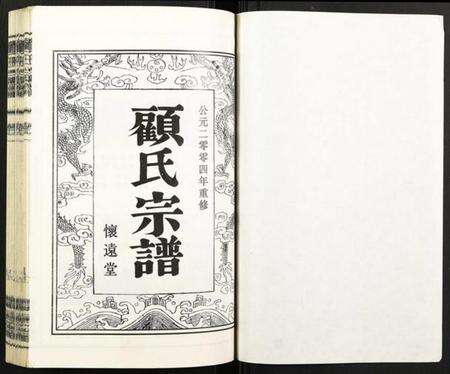 公元二零零四年重修
顧氏宗譜
懷遠堂